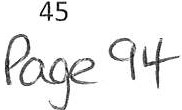 45
Page 94